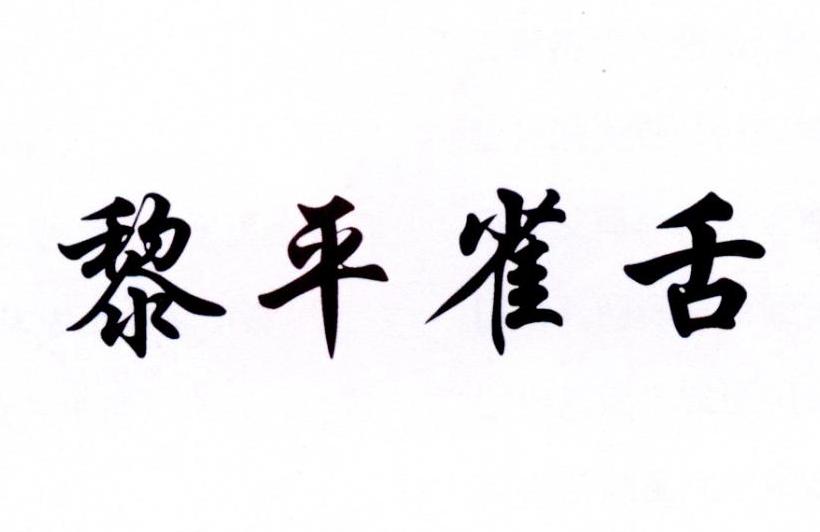 黎平雀舌